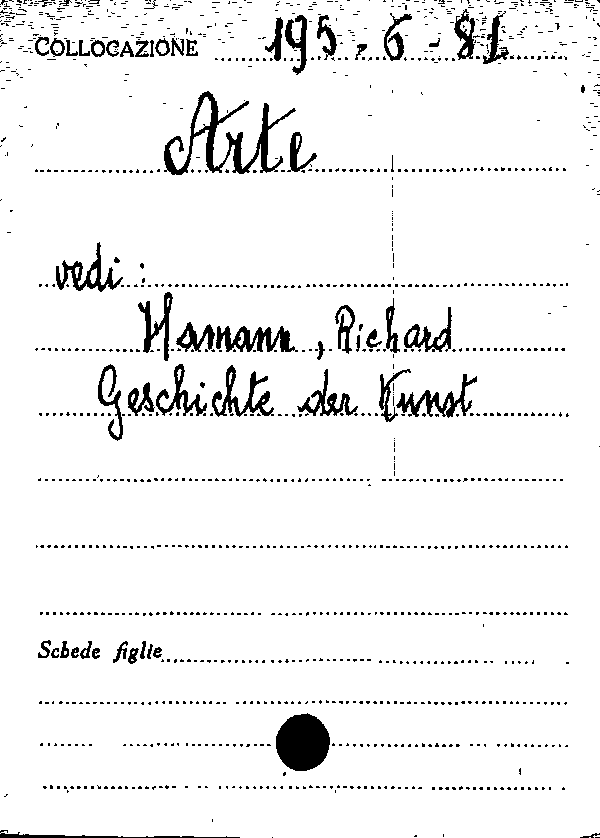 COLLOCAZIONE 195.6-81
Arte
vedi:
Hamann, Richard
Geschichte der Kunst
Schede figlie